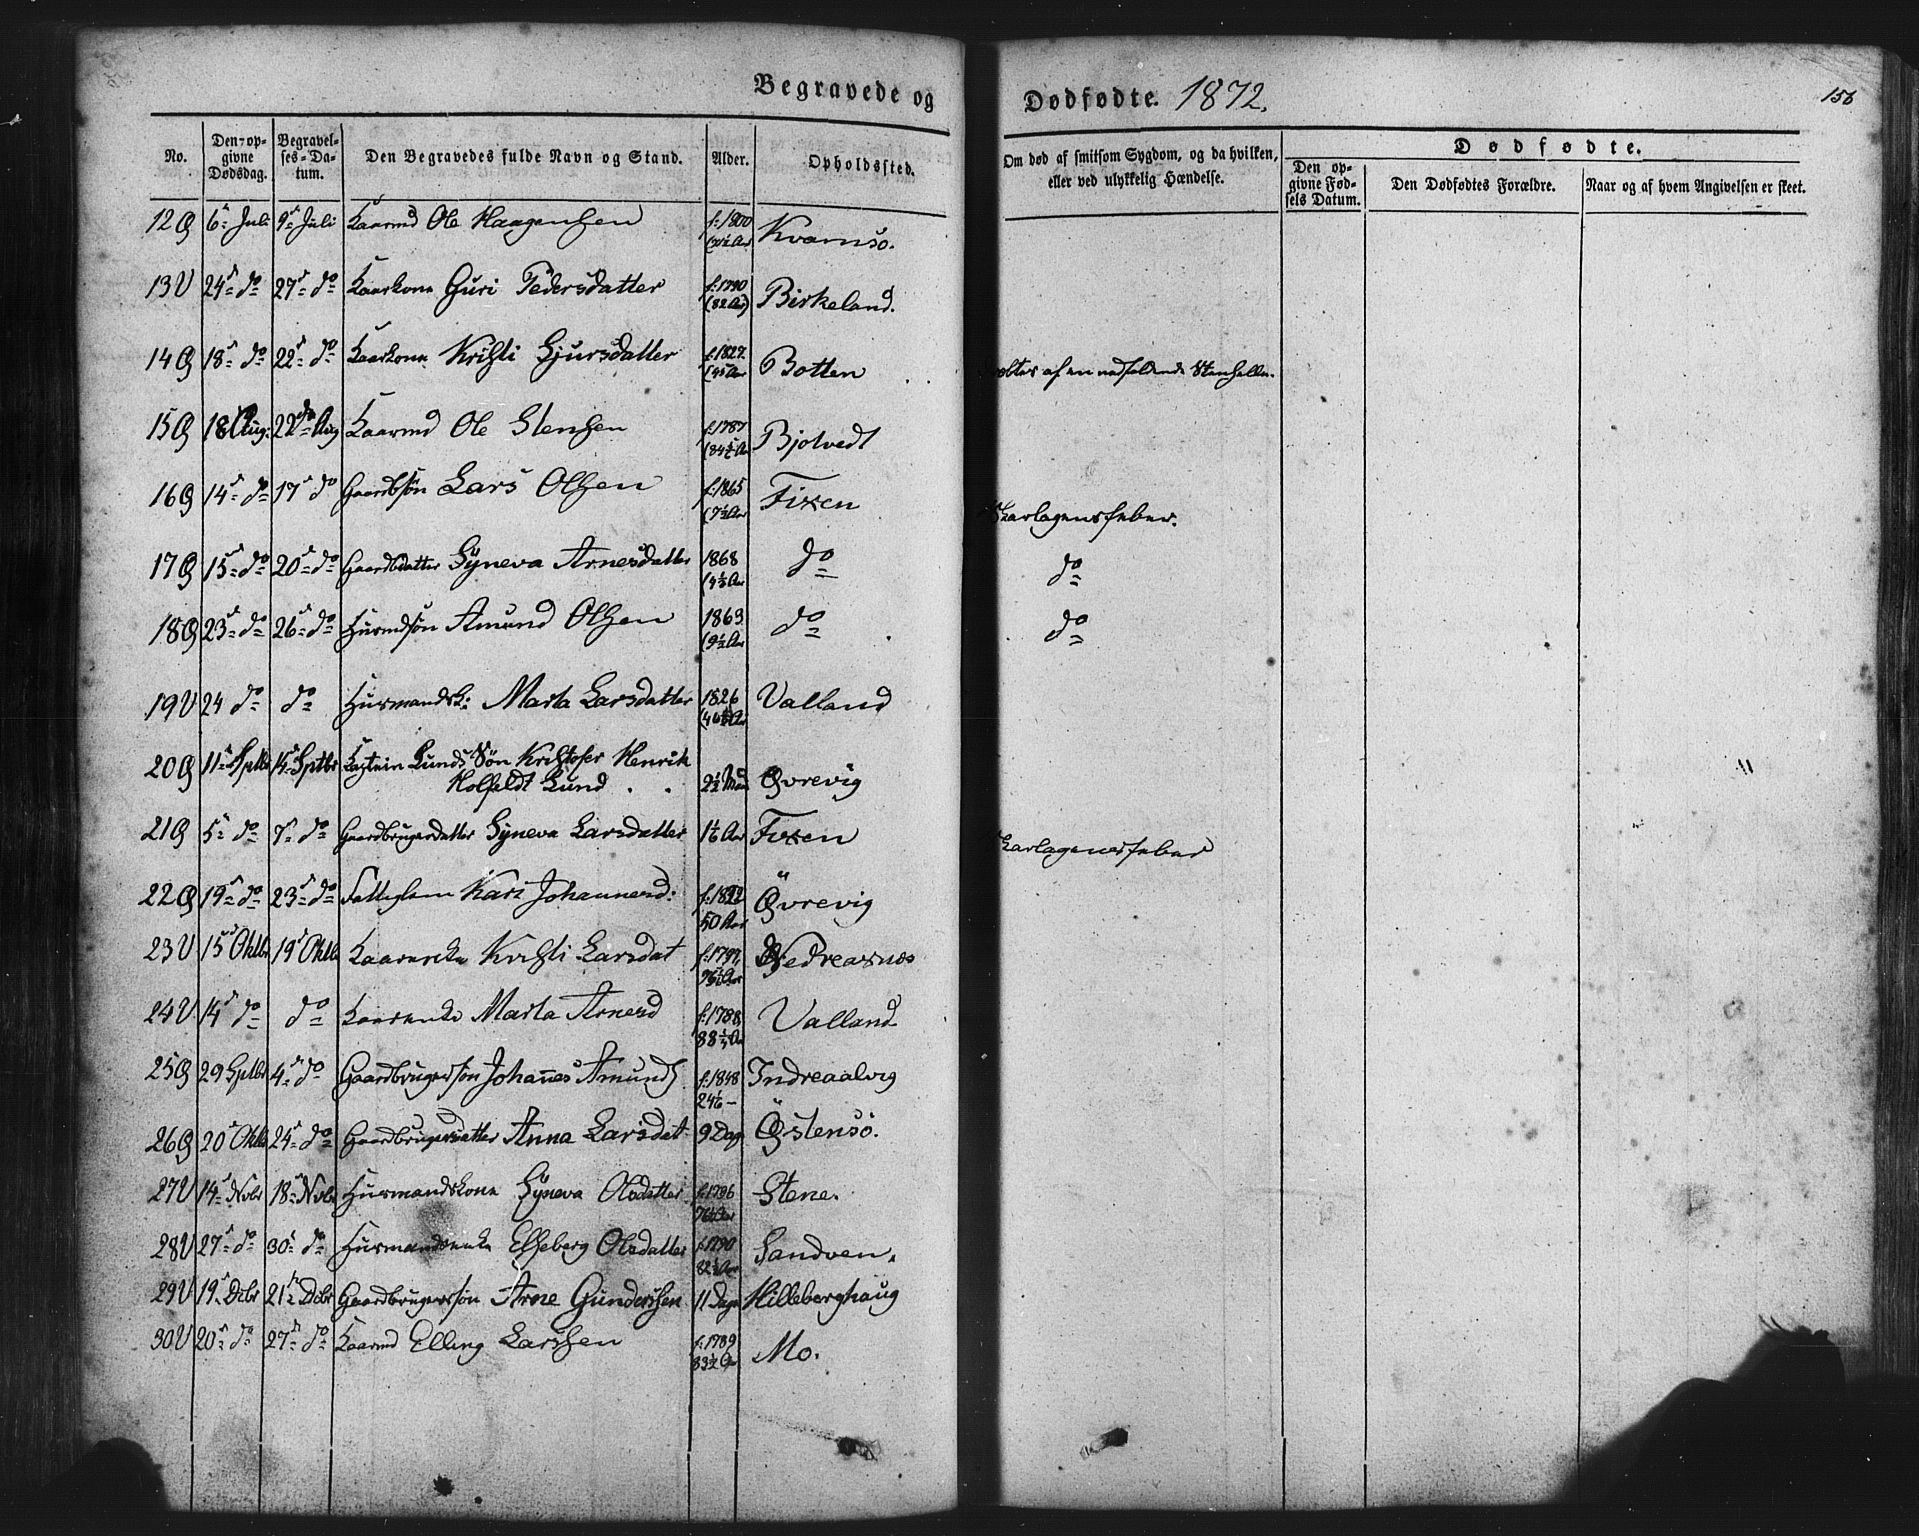 Begravede og Dødfødte. 1872.
156
No. Den opgivne Dødsdag. Begravelses-Datum. Den Begravedes fulde Navn og Stand. Alder. Opholdssted. Om død af smitsom Sygdom, og da hvilken, eller ved ulykkelig Hændelse. Dødfødte.
Den opgivne Fødsels Datum. Den Dødfødtes Forældre. Naar og af hvem Angivelsen er skeet.
12Ø 6te Juli 9de Juli Kaarmd Ole Haagensen f: 1800 Kvamsø.
13V 24de do 27de do Kaarkona Guri Pedersdatter f: 1790 (82 Aar) Birkeland.
14Ø 18de do 22de do Kaarkona Kristi Sjursdatter f. 1827 (45 Aar Botten af en nedfaldende Stenhelle.
15Ø 18 Aug: 22de Aug Kaarmd Ole Stensen f. 1787 (84½ Aar Bjotvedt
16Ø 14de do 17de do Gaardbsøn Lars Olsen f. 1865 (7½ Aar Fixen Skarlagensfeber.
17Ø 15de do 20de do Gaardbdatter Syneva Arnesdatter 1868 (4½ Aar do do
18Ø 23de do 26de do Husmdsøn Amund Olsen 1863 (9½ Aar do do
19V 24 do do Husmandsk: Marta Larsdatter 1826 Valland
20Ø 11te Sptbr 14de Sptbr Captein Lunds Søn Kristofer Henrik
Holfeldt Lund 2½ Mnd Øvrevig
21Ø 5te do 7de do Gaardbrugerdatter Syneva Larsdatter 1⅙ Aar Fixen Skarlagensfeber
22Ø 19de do 23de do Fattiglem Kari Johannesd: f: 1822 50 Aar Øvrevig
23V 15de Oktbr 19de Oktbr Kaarenke Kristi Larsdat Nedreaxnes
24V 14de do do Kaarenke Marta Arnesd f. 1788 Valland
25Ø 29 Sptbr 4de do Gaardbrugersøn Johannes Amunds f. 1848 24⅙ — Indreaalvig
26Ø 20de Oktb 24de do Gaardbrugerdatter Anna Larsdat 9 Dag Østensø.
27V 14de Nvbr 18de Nvbr Husmandskona Syneva Olsdatter f. 1796 Stene.
28V 27de do 30te do Husmandsenke Elseberg Olsdatter f. 1790 82½ Aar Sandven.
29V 19de Dcbr 21de Dcbr Gaardbrugersøn Arne Gundersen 11 Dage Hilleberghaug
30V 20de do 27de do Kaarmd Elling Larssen f. 1789 83½ Aar Mo.